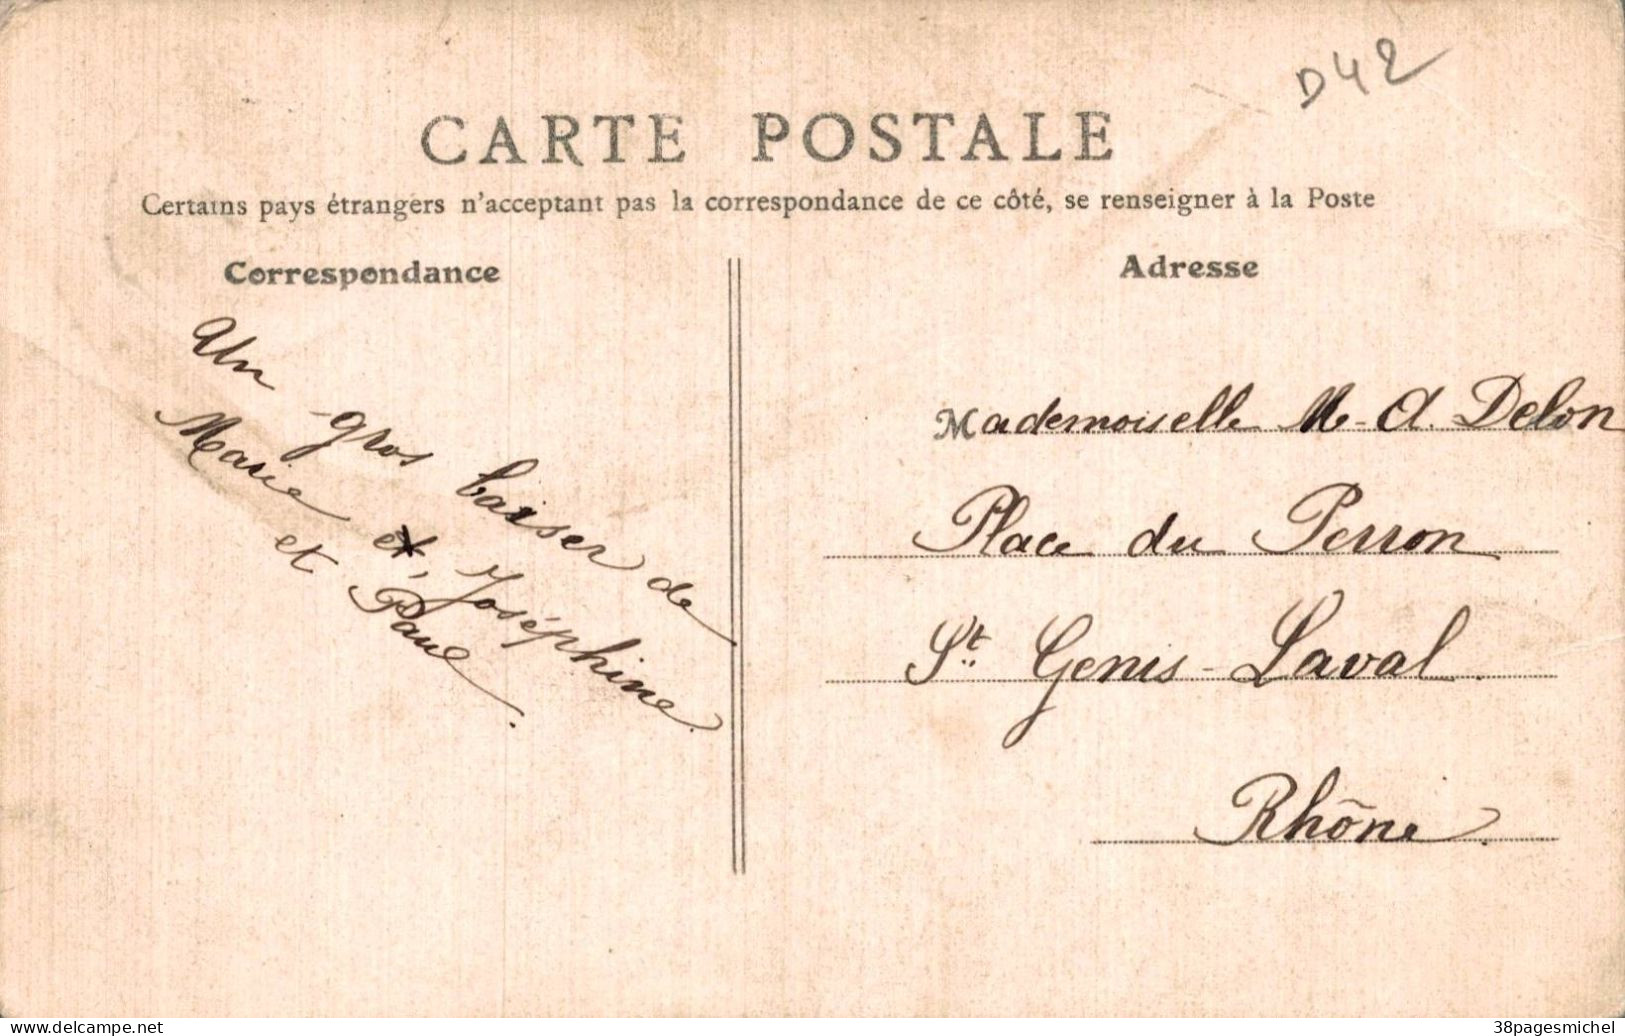 D42
CARTE POSTALE
Certains pays étrangers n'acceptant pas la correspondance de ce côté, se renseigner à la Poste
Correspondance
Un gros baiser de
Marie et, Joséphine.
et Paul.
Adresse
Mademoiselle M-A. Delon
Place du Perron
St. Genis-Laval.
Rhône.
www.delcampe.net
38pagesmichel